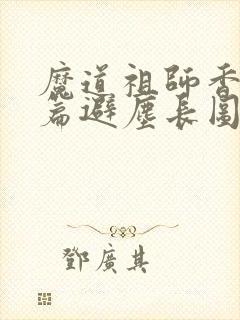 魔道祖師香
篇避塵長圖
鄧廣其